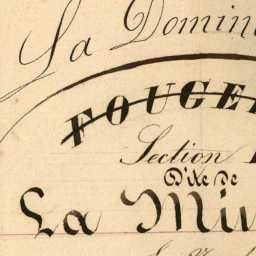 La Domin
FOUGE
Section
Dite De
La Mi